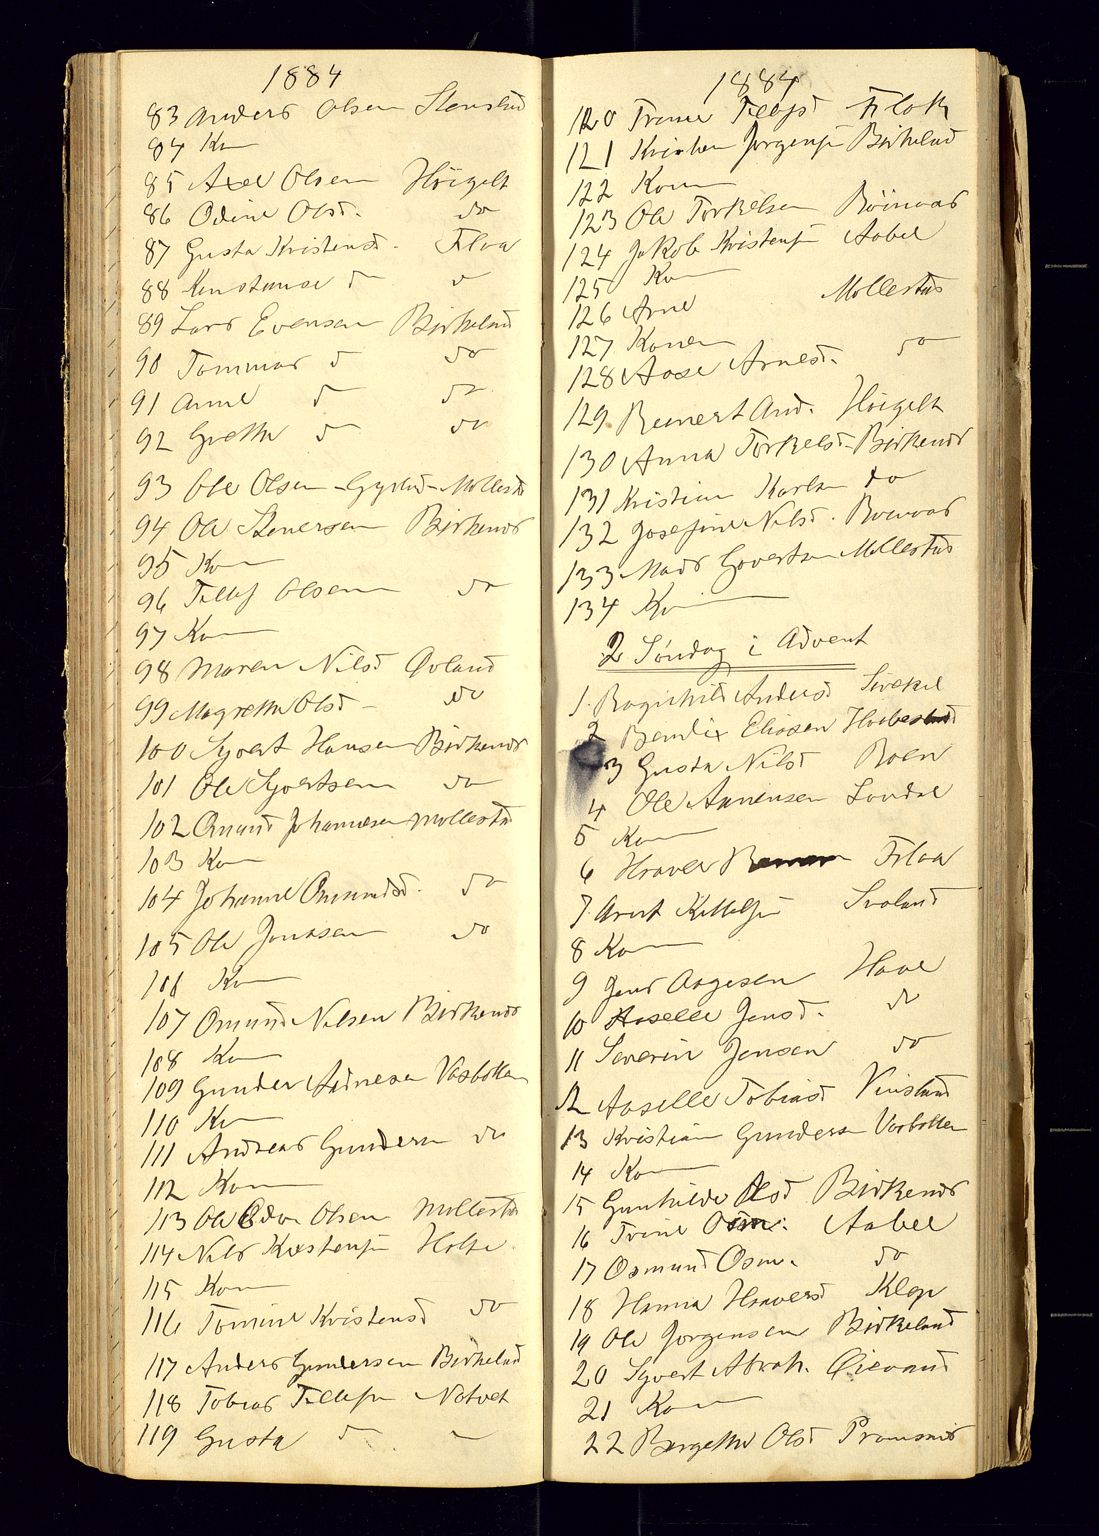 1884
83 Anders Olsen Stenslid
84 Kon
85 Axel Olsen Höigilt
86 Odine Olsd. do
87 Gusta Kristensd. Flaa
88 Konstanse d
89 Lars Evensen Birkeland
90 Tommas d do
91 Anne d do
92 Grethe d do
93 Ole Olsen Mollestd
94 Ole Stenersen Birkends
95 Kon
96 Tellef Olsen do
97 Kon
98 Maren Nilsd Øvland
99 Magrethe Olsd do
100 Syvert Hansen Birkends
101 Ole Syvertsen do
102 Omund Johannesen Mollestd
103 Kon
104 Johanne Omundsd. do
105 Ole Jonasen do
106 Kon
107 Omund Nilsen Birkends
108 Kon
109 Gunder Aanesen Vasbotten
110 Kon
111 Andreas Gundersn do
112 Kon
113 Ole Olsen Mollestd
114 Nils Kristensn Holte
115 Kon
116 Tomine Kristensd do
117 Anders Gundersen Birkeland
118 Tobias Tellefsn Natvet
119 Gusta d
1884
120 Trine Tellefsd Flak
121 Kristen Jørgensn Birkeland
122 Kon
123 Ole Torkelsen Röinaas
124 Jakob Kristensn Aabel
125 Kon
126 Arne Mollestad
127 Konen
128 Aase Arnesd. do
129 Reinert And. Höigilt
130 Anna Torkelsd. Birkends
131 Kristian Karlsn do
132 Josefine Nilsd. Roinaas
133 Mads Govertsn Mollestad
134 Kon
2 Søndag i Advent
1. Ragnhild Andersd
2 Bendix Eliasen
3 Gusta Nilsd Roen
4 Ole Aanensen Londal
5 Kon
6 Haaver Flaa
7 Arut Kittelsn Svaland
8 Kon
9 Jens Aagesen Haave
10 Aaselle Jensd. do
11 Severin Jensen do
12 Aaselle Tobiasd Vinsland
13 Kristian Gundersn Vasbotten
14 Kon
15 Gunhilde Olsd Birkends
16 Trine Osm. Aabel
17 Osmund Osm. do
18 Hanna Haaversd Klep
19 Ole Jørgensen Birkeland
20 Syvert Abrah. Oievand
21 Kon
22 Bergethe Olsd